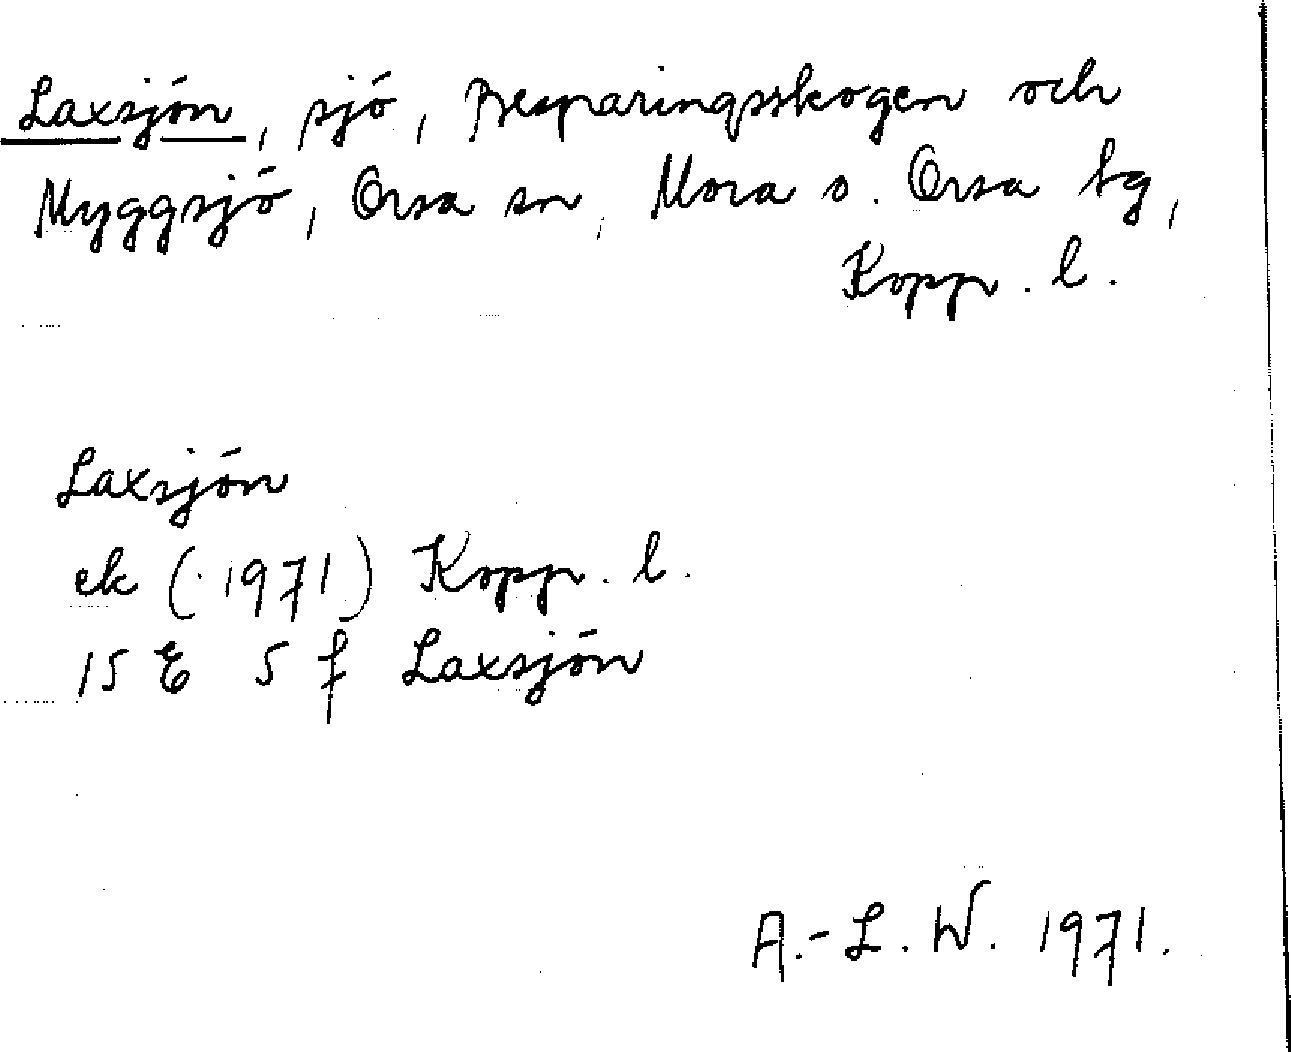 Laxsjön, sjö, Besparingsskogen och
Myggsjö, Orsa sn, Mora o. Orsa tg,
Kopp. l.
Laxsjön
ek (1971) Kopp. l.
15 E 5 f Laxsjön
A.-L. W. 1971.